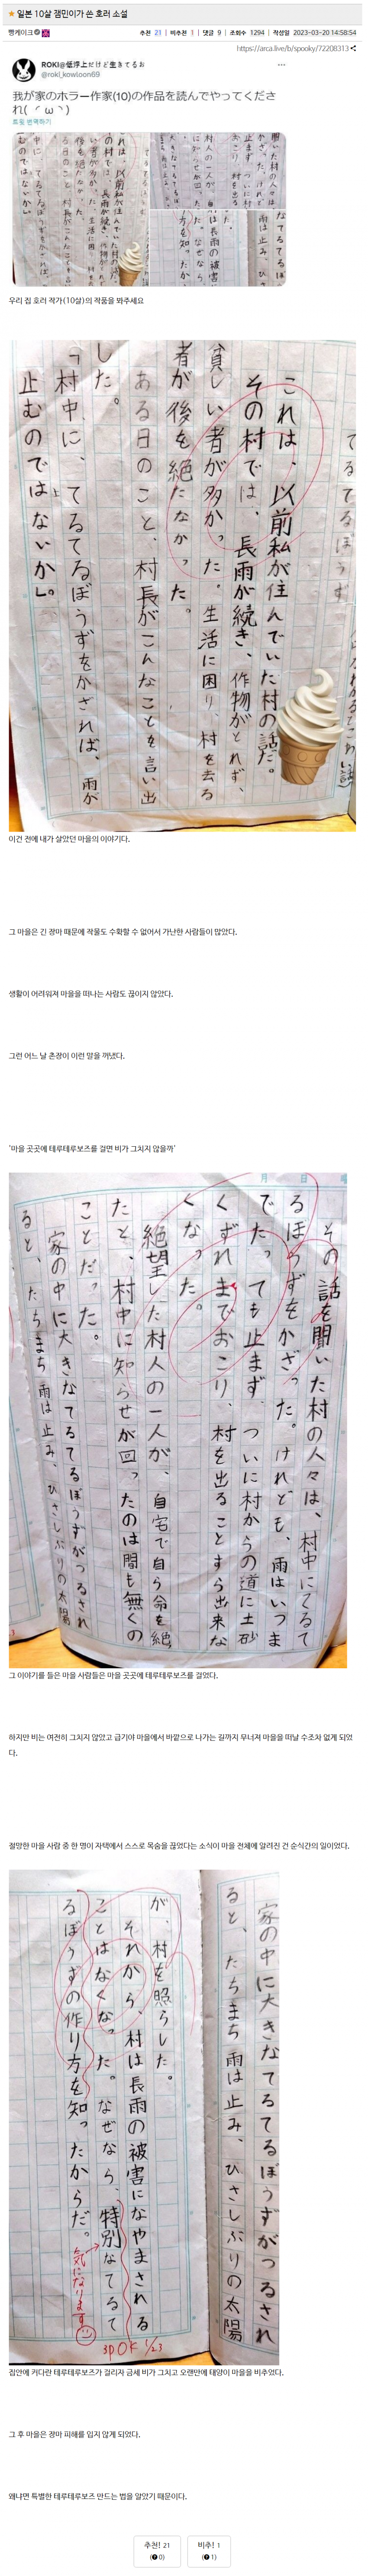 ★ 일본 10살 잼민이가 쓴 호러 소설
빵케이크
추천 21 | 비추천 1 | 댓글 9 | 조회수 1294 | 작성일 2023-03-20 14:58:54
https://arca.live/b/spooky/72208313
ROKI@低浮上だけど生きてるお
@roki_kowloon69
我が家のホラー作家(10)の作品を読んでやってくださ
れ( ´ω`)
트윗 번역하기
우리 집 호러 작가(10살)의 작품을 봐주세요
これは、以前私が住んでいた村の話だ。
その村では、長雨が続き、作物がとれず、
貧しい者が多かった。生活に困り、村を去る
者が後を絶たなかった。
ある日のこと、村長がこんなことを言い出
した。
「村中に、てるてるぼうずをかざれば、雨が
止むのではないか」。
이건 전에 내가 살았던 마을의 이야기다.
그 마을은 긴 장마 때문에 작물도 수확할 수 없어서 가난한 사람들이 많았다.
생활이 어려워져 마을을 떠나는 사람도 끊이지 않았다.
그런 어느 날 촌장이 이런 말을 꺼냈다.
'마을 곳곳에 테루테루보즈를 걸면 비가 그치지 않을까'
月 日 曜
その話を聞いた村の人々は、村中にてるて
るぼうずをかざった。けれども、雨はいつま
でたっても止まず、ついに村からの道に土砂
くずれまでおこり、村を出ることすら出来な
くなった。
絶望した村人の一人が、自宅で自ら命を絶
たと、村中に知らせが回ったのは間も無くの
ことだった。
家の中に大きなてるてるぼうずがつるされ
ると、たちまち雨は止み、ひさしぶりの太陽
그 이야기를 들은 마을 사람들은 마을 곳곳에 테루테루보즈를 걸었다.
하지만 비는 여전히 그치지 않았고 급기야 마을에서 바깥으로 나가는 길까지 무너져 마을을 떠날 수조차 없게 되었
다.
절망한 마을 사람 중 한 명이 자택에서 스스로 목숨을 끊었다는 소식이 마을 전체에 알려진 건 순식간의 일이었다.
家の中に大きなてるてるぼうずがつるされ
ると、たちまち雨は止み、ひさしぶりの太陽
が、村を照らした。
それから、村は長雨の被害になやまされる
ことはなくなった。なぜなら、特別なてるて
るぼうずの作り方を知ったからだ。
気になります
3P OK 1/23
집안에 커다란 테루테루보즈가 걸리자 금세 비가 그치고 오랜만에 태양이 마을을 비추었다.
그 후 마을은 장마 피해를 입지 않게 되었다.
왜냐면 특별한 테루테루보즈 만드는 법을 알았기 때문이다.
추천! 21
( 0)
비추! 1
( 1)